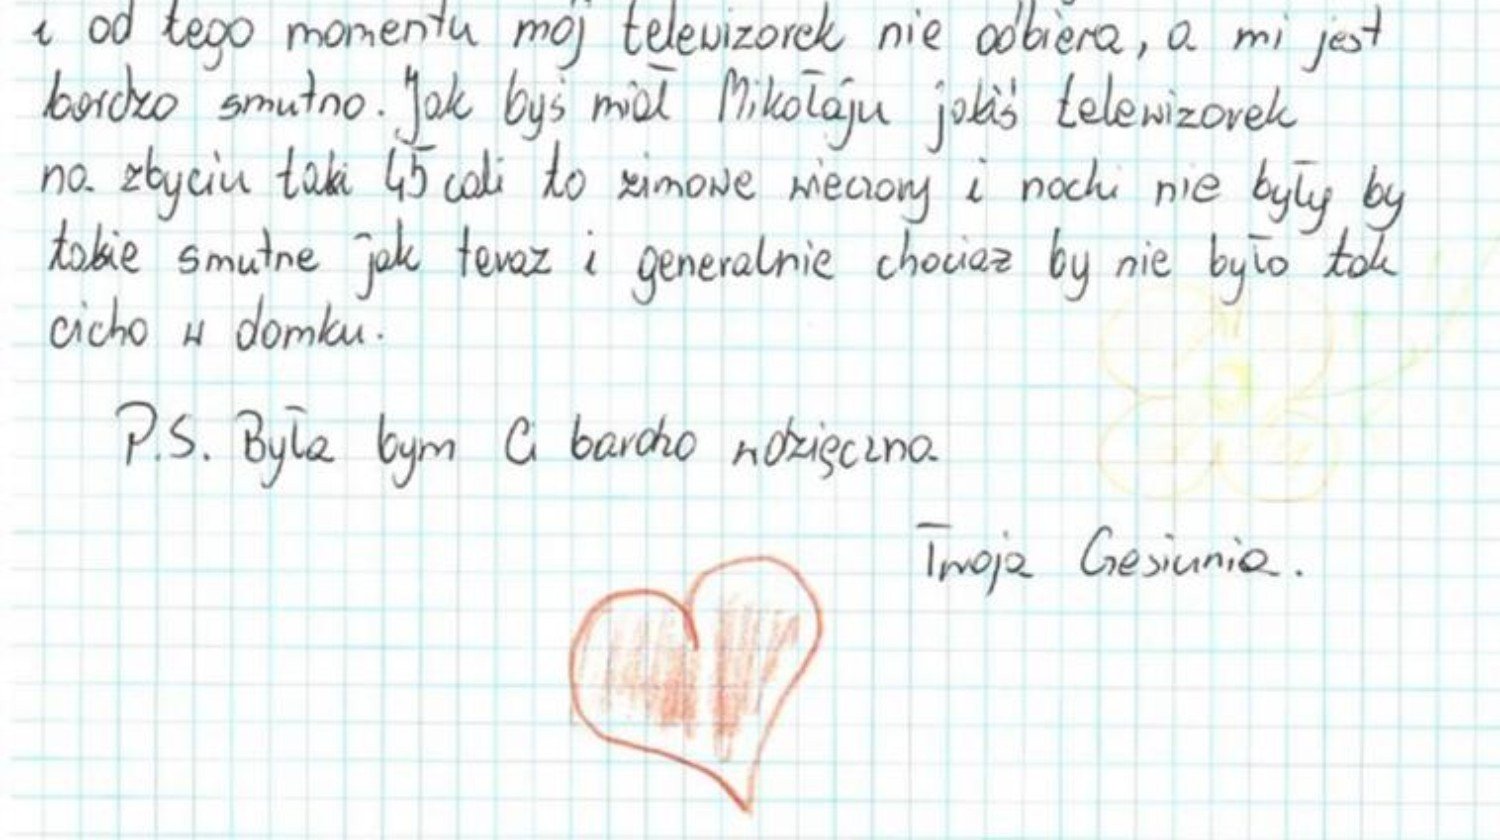 i od tego momentu mój telewizorek nie odbiera, a mi jest
bardzo smutno. Jak byś miał Mikołaju jakiś telewizorek
na zbyciu taki 45 cali to zimowe wieczory i nocki nie były by
takie smutne jak teraz i generalnie chociaż by nie było tak
cicho w domku.
P.S. Była bym Ci bardzo wdzięczna
Twoja Gesiunia.